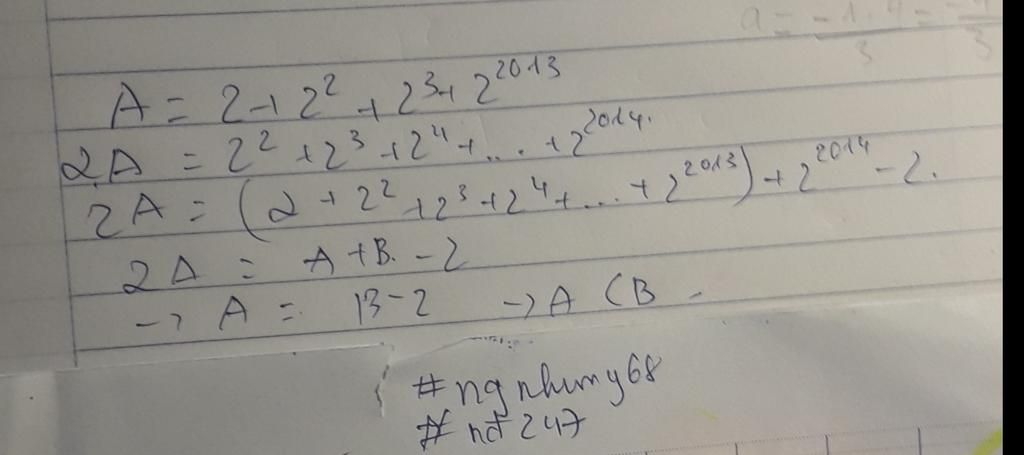 a = -1.4 = -4
3 3
A = 2 + 2² + 2³ + 2²⁰¹³
2A = 2² + 2³ + 2⁴ + ... + 2²⁰¹⁴.
2A = (2 + 2² + 2³ + 2⁴ + ... + 2²⁰¹³) + 2²⁰¹⁴ - 2.
2A = A + B. - 2
-> A = B - 2 -> A < B.
#ngnhumy68
# nct 247